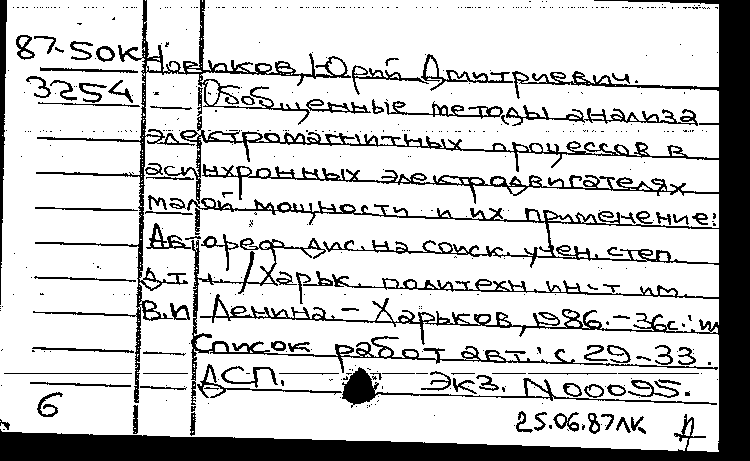 87-50К Новиков, Юрий Дмитриевич.
3254 Обобщенные методы анализа
электромагнитных процессов в
асинхронных электродвигателях
малой мощности и их применение:
Автореф. дис. на соиск. учен. степ.
д.т.н. / Харьк. политехн. ин-т им.
В.И Ленина. - Харьков, 1986. - 36с.:
Список работ авт.: с. 29-33.
ДСП. Экз. N00095.
6
25.06.87ЛК